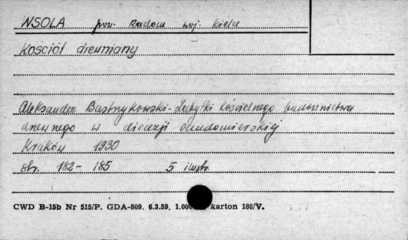 WSOLA pow. Radom woj. Kielce
Kościół drewniany
Aleksander Bastrzykowski - Zabytki kościelnego budownictwa
drewnego w diecezji sandomierskiej
Kraków 1930
str. 182 - 185 5 ilustr.
CWD B-15b Nr 515/P. GDA-809. 6.3.59. 1.000 karton 180/V.